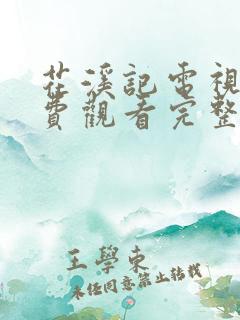 茌溪記電視
費觀看完整
王學東
未经同意禁止转载